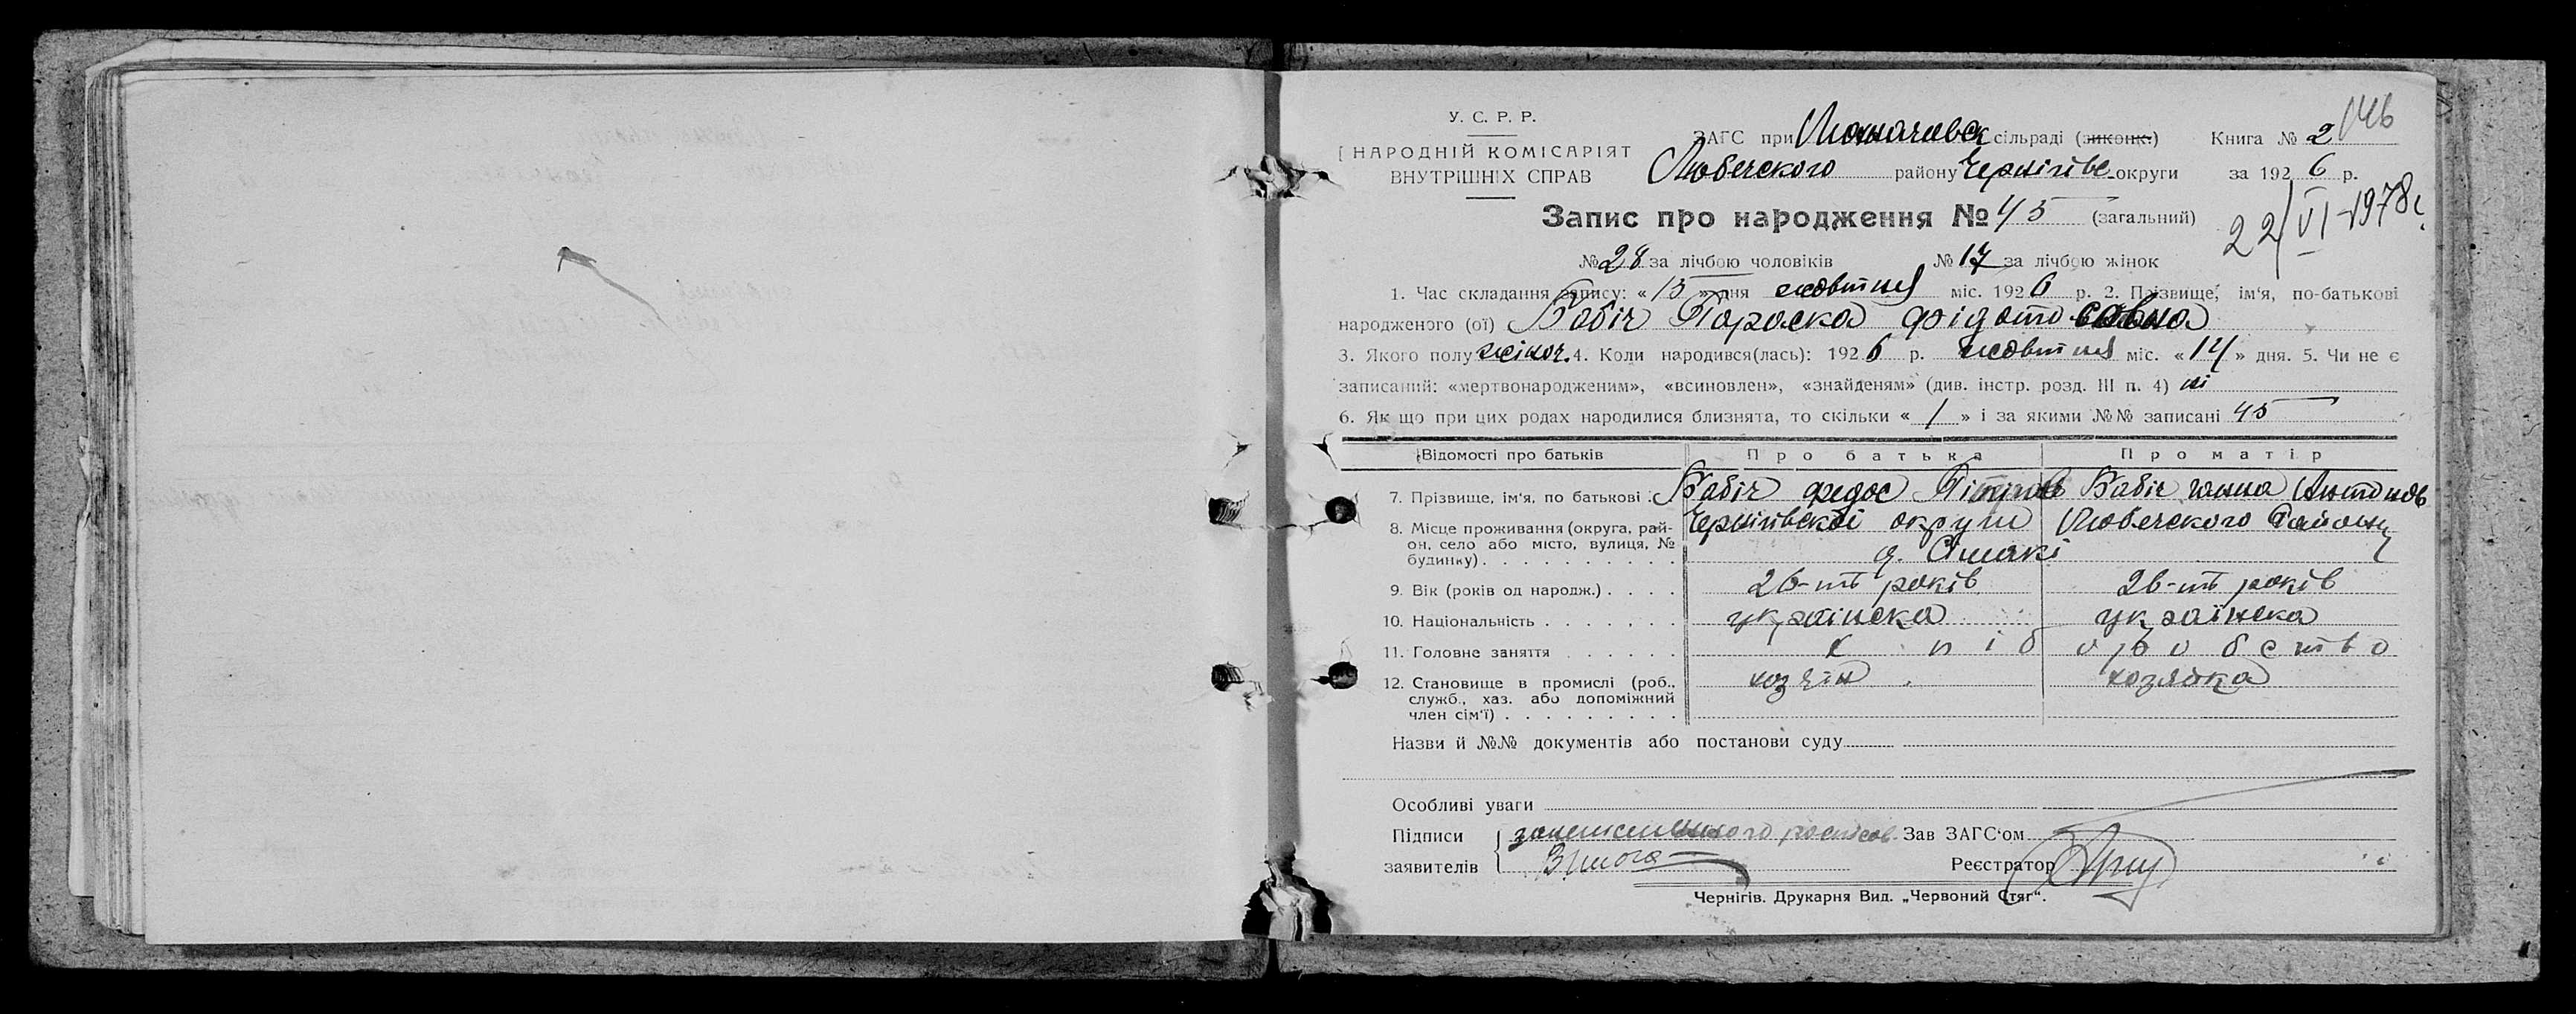 У. С. Р. Р.
НАРОДНІЙ КОМІСАРІЯТ
ВНУТРІШНІХ СПРАВ
146
ЗАГС при сільраді (виконк.) Книга № 2
Любечского району Чернігівс округи за 1926 р.
Запис про народження № 45 (загальний)
22/VI-1978г.
№ 28 за лічбою чоловіків № 17 за лічбою жінок
1. Час складання запису: «15» дня жовтня міс. 1926 р. 2. Прізвище, ім'я, по-батькові
народженого (ої) Бабіч Параска
3. Якого полу жіноч. 4. Коли народився(лась): 1926 р. жовтня міс. «14» дня. 5. Чи не є
записаний: «мертвонародженим», «всиновлен», «знайденям» (див. інстр. розд. III п. 4) ні
6. Як що при цих родах народилися близнята, то скільки «1» і за якими №№ записані 45
Відомості про батьків Про батька Про матір
7. Прізвище, ім'я, по батькові Бабіч Федос Бабіч ганна Антонов
8. Місце проживання (округа, рай- Чернігівскої округи Любечского Району
он, село або місто, вулиця, №
будинку) Ямакі
9. Вік (років од народж.) 26-ть років 26-ть років
10. Національність українска українска
11. Головне заняття хліборобство
12. Становище в промислі (роб., хозяін хозяйка
служб., хаз. або допоміжний
член сім'ї)
Назви й №№ документів або постанови суду
Особливі уваги
Підписи Зав ЗАГС'ом
заявителів Реєстратор
Чернігів. Друкарня Вид. „Червоний Стяг“.